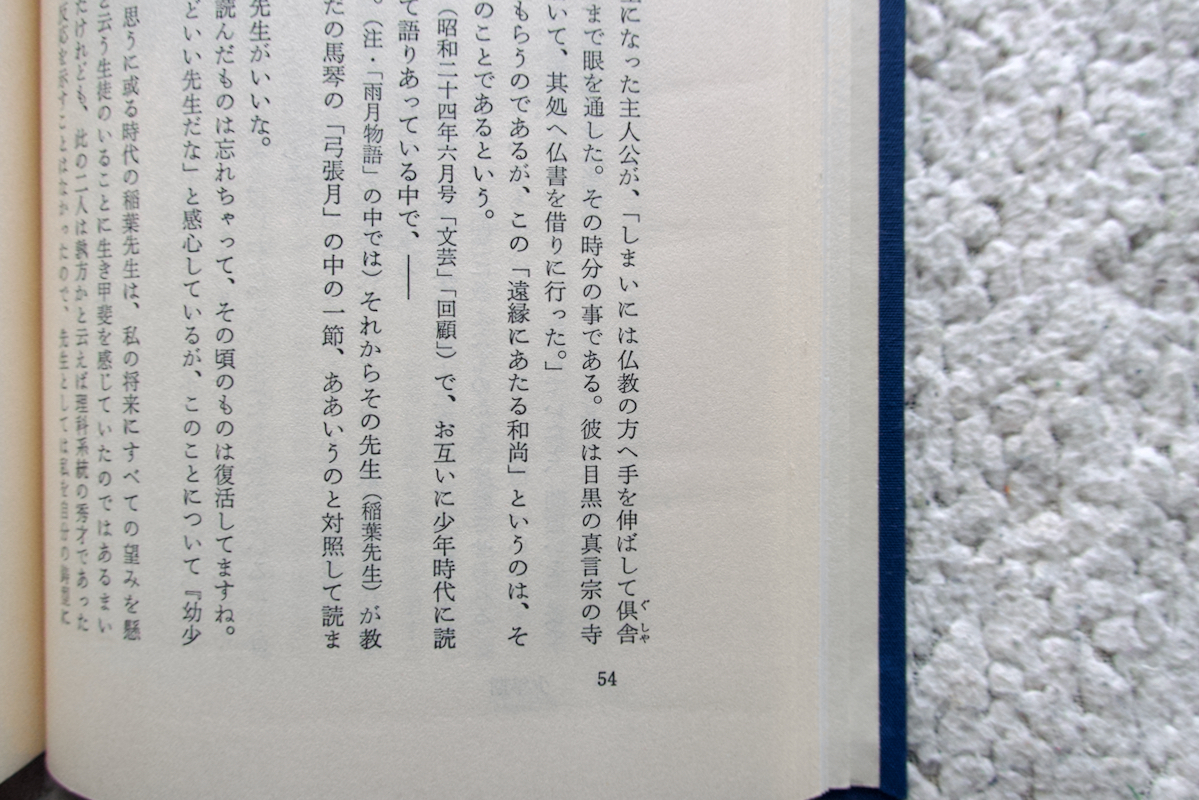 になった主人公が、「しまいには仏教の方へ手を伸ばして倶舎
ぐしゃ
まで眼を通した。その時分の事である。彼は目黒の真言宗の寺
いて、其処へ仏書を借りに行った。」
もらうのであるが、この「遠縁にあたる和尚」というのは、そ
のことであるという。
（昭和二十四年六月号「文芸」「回顧」）で、お互いに少年時代に読
て語りあっている中で、――
。（注・「雨月物語」の中では）それからその先生（稲葉先生）が教
たの馬琴の「弓張月」の中の一節、ああいうのと対照して読ま
先生がいいな。
読んだものは忘れちゃって、その頃のものは復活してますね。
といい先生だな」と感心しているが、このことについて『幼少
思うに或る時代の稲葉先生は、私の将来にすべての望みを懸
と云う生徒のいることに生き甲斐を感じていたのではあるまい
たけれども、此の二人は孰方かと云えば理科系統の秀才であった
すことはなかったので、先生としては私を自分の
54